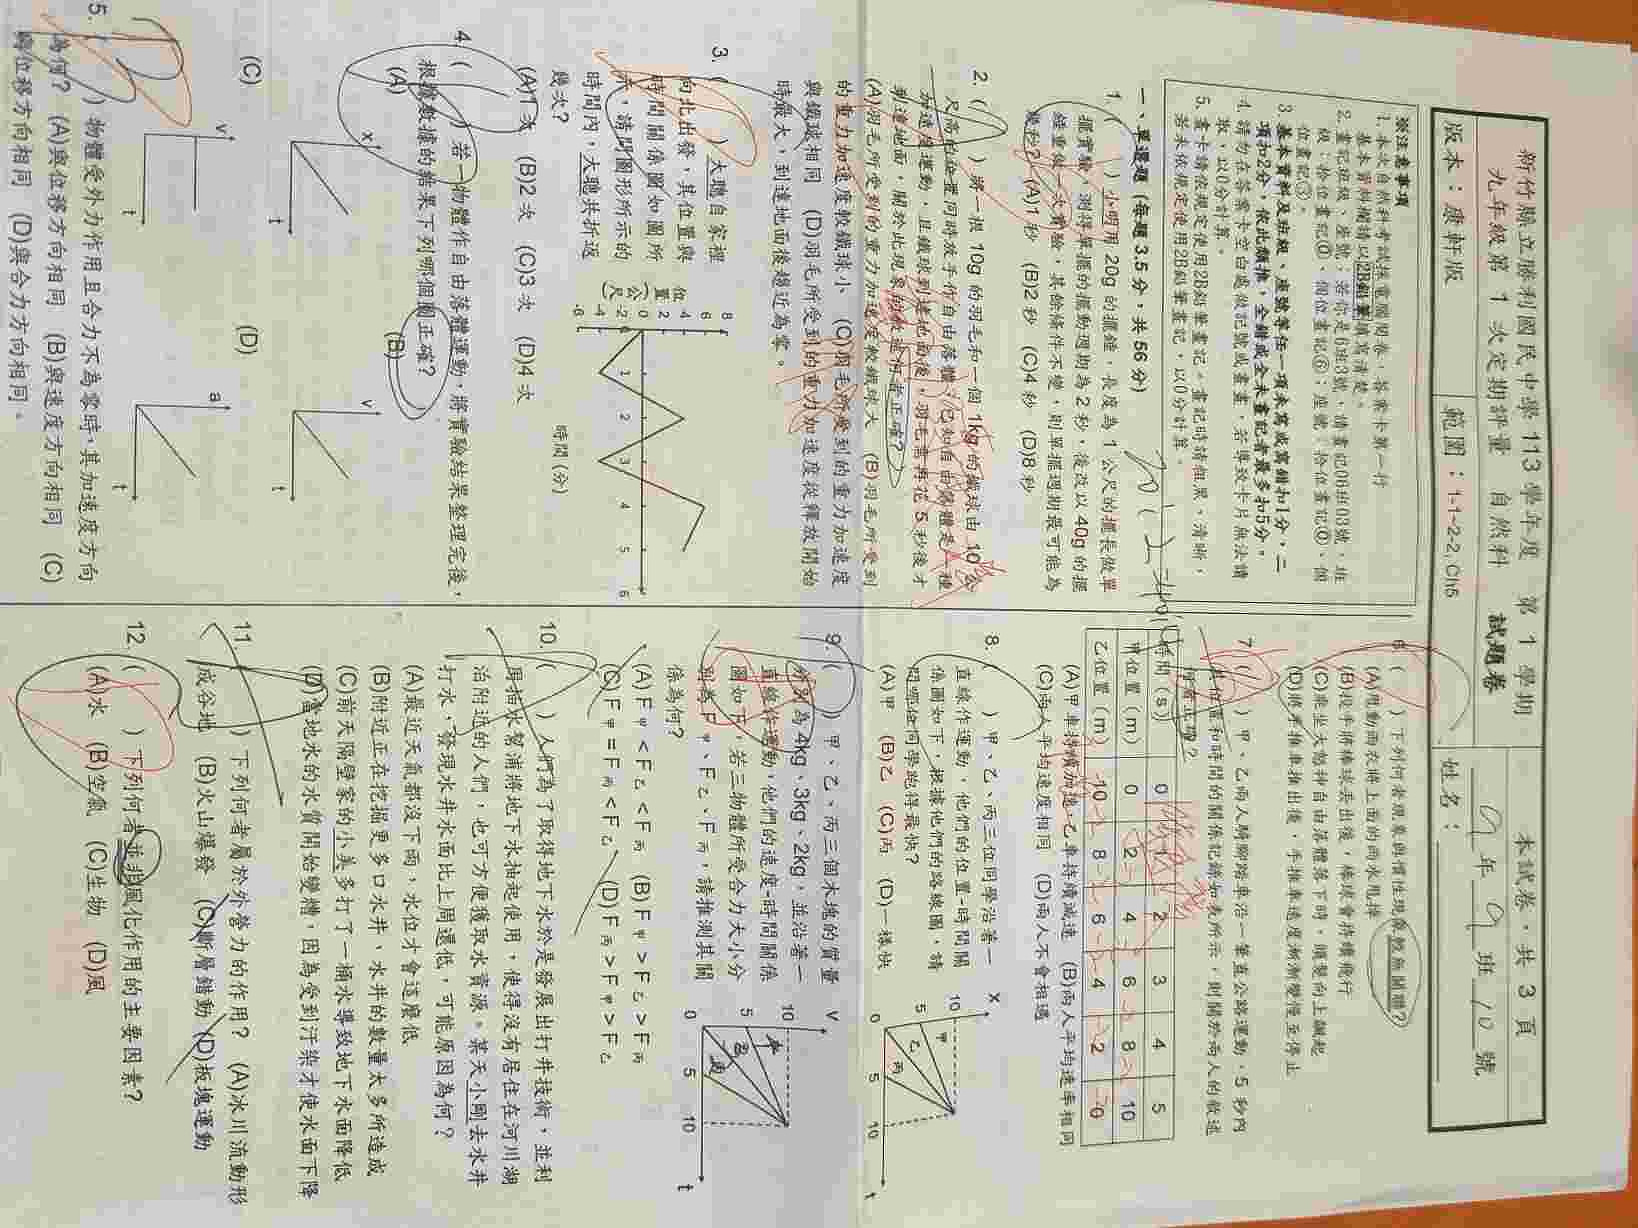 新竹縣立勝利國民中學 113 學年度 第 1 學期
九年級第 1 次定期評量 自然科 試題卷
本試卷，共 3 頁
9 年 9 班 10 號
版本：康軒版
範圍：1-1~2-2, Ch5
姓名：
※注意事項
1. 本次自然科考試採電腦閱卷，答案卡第一行
基本資料欄請以2B鉛筆填寫清楚。
位畫記③。
3. 基本資料及班級、座號等任一項未寫或寫錯扣1分，二
項扣2分，依此類推，全錯或全未畫記者最多扣5分。
4. 請勿在答案卡空白處做記號或畫畫，若導致卡片無法讀
取，以0分計算。
5. 畫卡請依規定使用2B鉛筆畫記。畫記時請粗黑、清晰，
若未依規定使用2B鉛筆畫記，以0分計算。
一、單選題 (每題 3.5 分，共 56 分)
1. ( ) 小明用 20g 的擺錘，長度為 1 公尺的擺長做單
擺實驗，測得單擺的擺動週期為 2 秒，後改以 40g 的擺
錘重做一次實驗，其餘條件不變，則單擺週期最可能為
幾秒？ (A)1 秒 (B)2 秒 (C)4 秒 (D)8 秒
2. ( ) 將一根 10g 的羽毛和一個 1kg 的鐵球由 10 公
尺高的位置同時放手作自由落體，已知自由落體是一種
加速度運動，且鐵球到達地面後，羽毛需再花 5 秒後才
到達地面，關於此現象的敘述何者正確？
(A)羽毛所受到的重力加速度較鐵球大 (B)羽毛所受到
的重力加速度較鐵球小 (C)羽毛所受到的重力加速度
與鐵球相同 (D)羽毛所受到的重力加速度從釋放開始
時最大，到達地面後趨近為零。
3. ( ) 大聰自家裡
向北出發，其位置與
時間關係圖如圖所
示，請問圖形所示的
時間內，大聰共折返
幾次？
位置(公尺)
8
6
4
2
0
-2
-4
-6
1 2 3 4 5 6
時間 (分)
(A)1 次 (B)2 次 (C)3 次 (D)4 次
4. ( ) 若一物體作自由落體運動，將實驗結果整理完後，
根據數據的結果下列哪個圖正確？
(A) x t
(B) v t
(C) v t
(D) a t
5. ( ) 物體受外力作用且合力不為零時，其加速度方向
為何？ (A)與位移方向相同 (B)與速度方向相同 (C)
與位移方向相同 (D)與合力方向相同。
6. ( ) 下列何者現象與慣性現象較無關聯？
(A)甩動雨衣將上面的雨水甩掉
(B)投手將棒球丟出後，棒球會持續飛行
(C)乘坐大怒神自由落體落下時，頭髮向上飄起
(D)將手推車推出後，手推車速度漸漸變慢至停止
7. ( ) 甲、乙兩人騎腳踏車沿一筆直公路運動，5 秒內
其位置和時間的關係記錄如表所示，則關於兩人的敘述
何者正確？
時間 (s) 0 1 2 3 4 5
甲位置 (m) 0 2 4 6 8 10
乙位置 (m) -10 -8 -6 -4 -2 0
(A)甲車持續加速，乙車持續減速 (B)兩人平均速率相同
(C)兩人平均速度相同 (D)兩人不會相遇
8. ( ) 甲、乙、丙三位同學沿著一
直線作運動，他們的位置-時間關
係圖如下，根據他們的路線圖，請
問哪位同學跑得最快？
(A)甲 (B)乙 (C)丙 (D)一樣快
x
10
5
0
甲
乙
丙
5 10 t
9. ( ) 甲、乙、丙三個木塊的質量
分別為 4kg、3kg、2kg，並沿著一
直線作運動，他們的速度-時間關係
圖如下，若三物體所受合力大小分
別為 F甲、F乙、F丙，請推測其關
係為何？
(A) F甲 < F乙 < F丙 (B) F甲 > F乙 > F丙
(C) F甲 = F丙 < F乙 (D) F丙 > F甲 > F乙
v
10
5
0
甲
乙
丙
5 10 t
10. ( ) 人們為了取得地下水於是發展出打井技術，並利
用抽水幫浦將地下水抽起使用，使得沒有居住在河川湖
泊附近的人們，也可方便獲取水資源。某天小剛去水井
打水，發現水井水面比上周還低，可能原因為何？
(A)最近天氣都沒下雨，水位才會這麼低
(B)附近正在挖掘更多口水井，水井的數量太多所造成
(C)前天隔壁家的小美多打了一桶水導致地下水面降低
(D)當地水的水質開始變糟，因為受到汙染才使水面下降
11. ( ) 下列何者屬於外營力的作用？ (A)冰川流動形
成谷地 (B)火山爆發 (C)斷層錯動 (D)板塊運動
12. ( ) 下列何者並非風化作用的主要因素？
(A)水 (B)空氣 (C)生物 (D)風